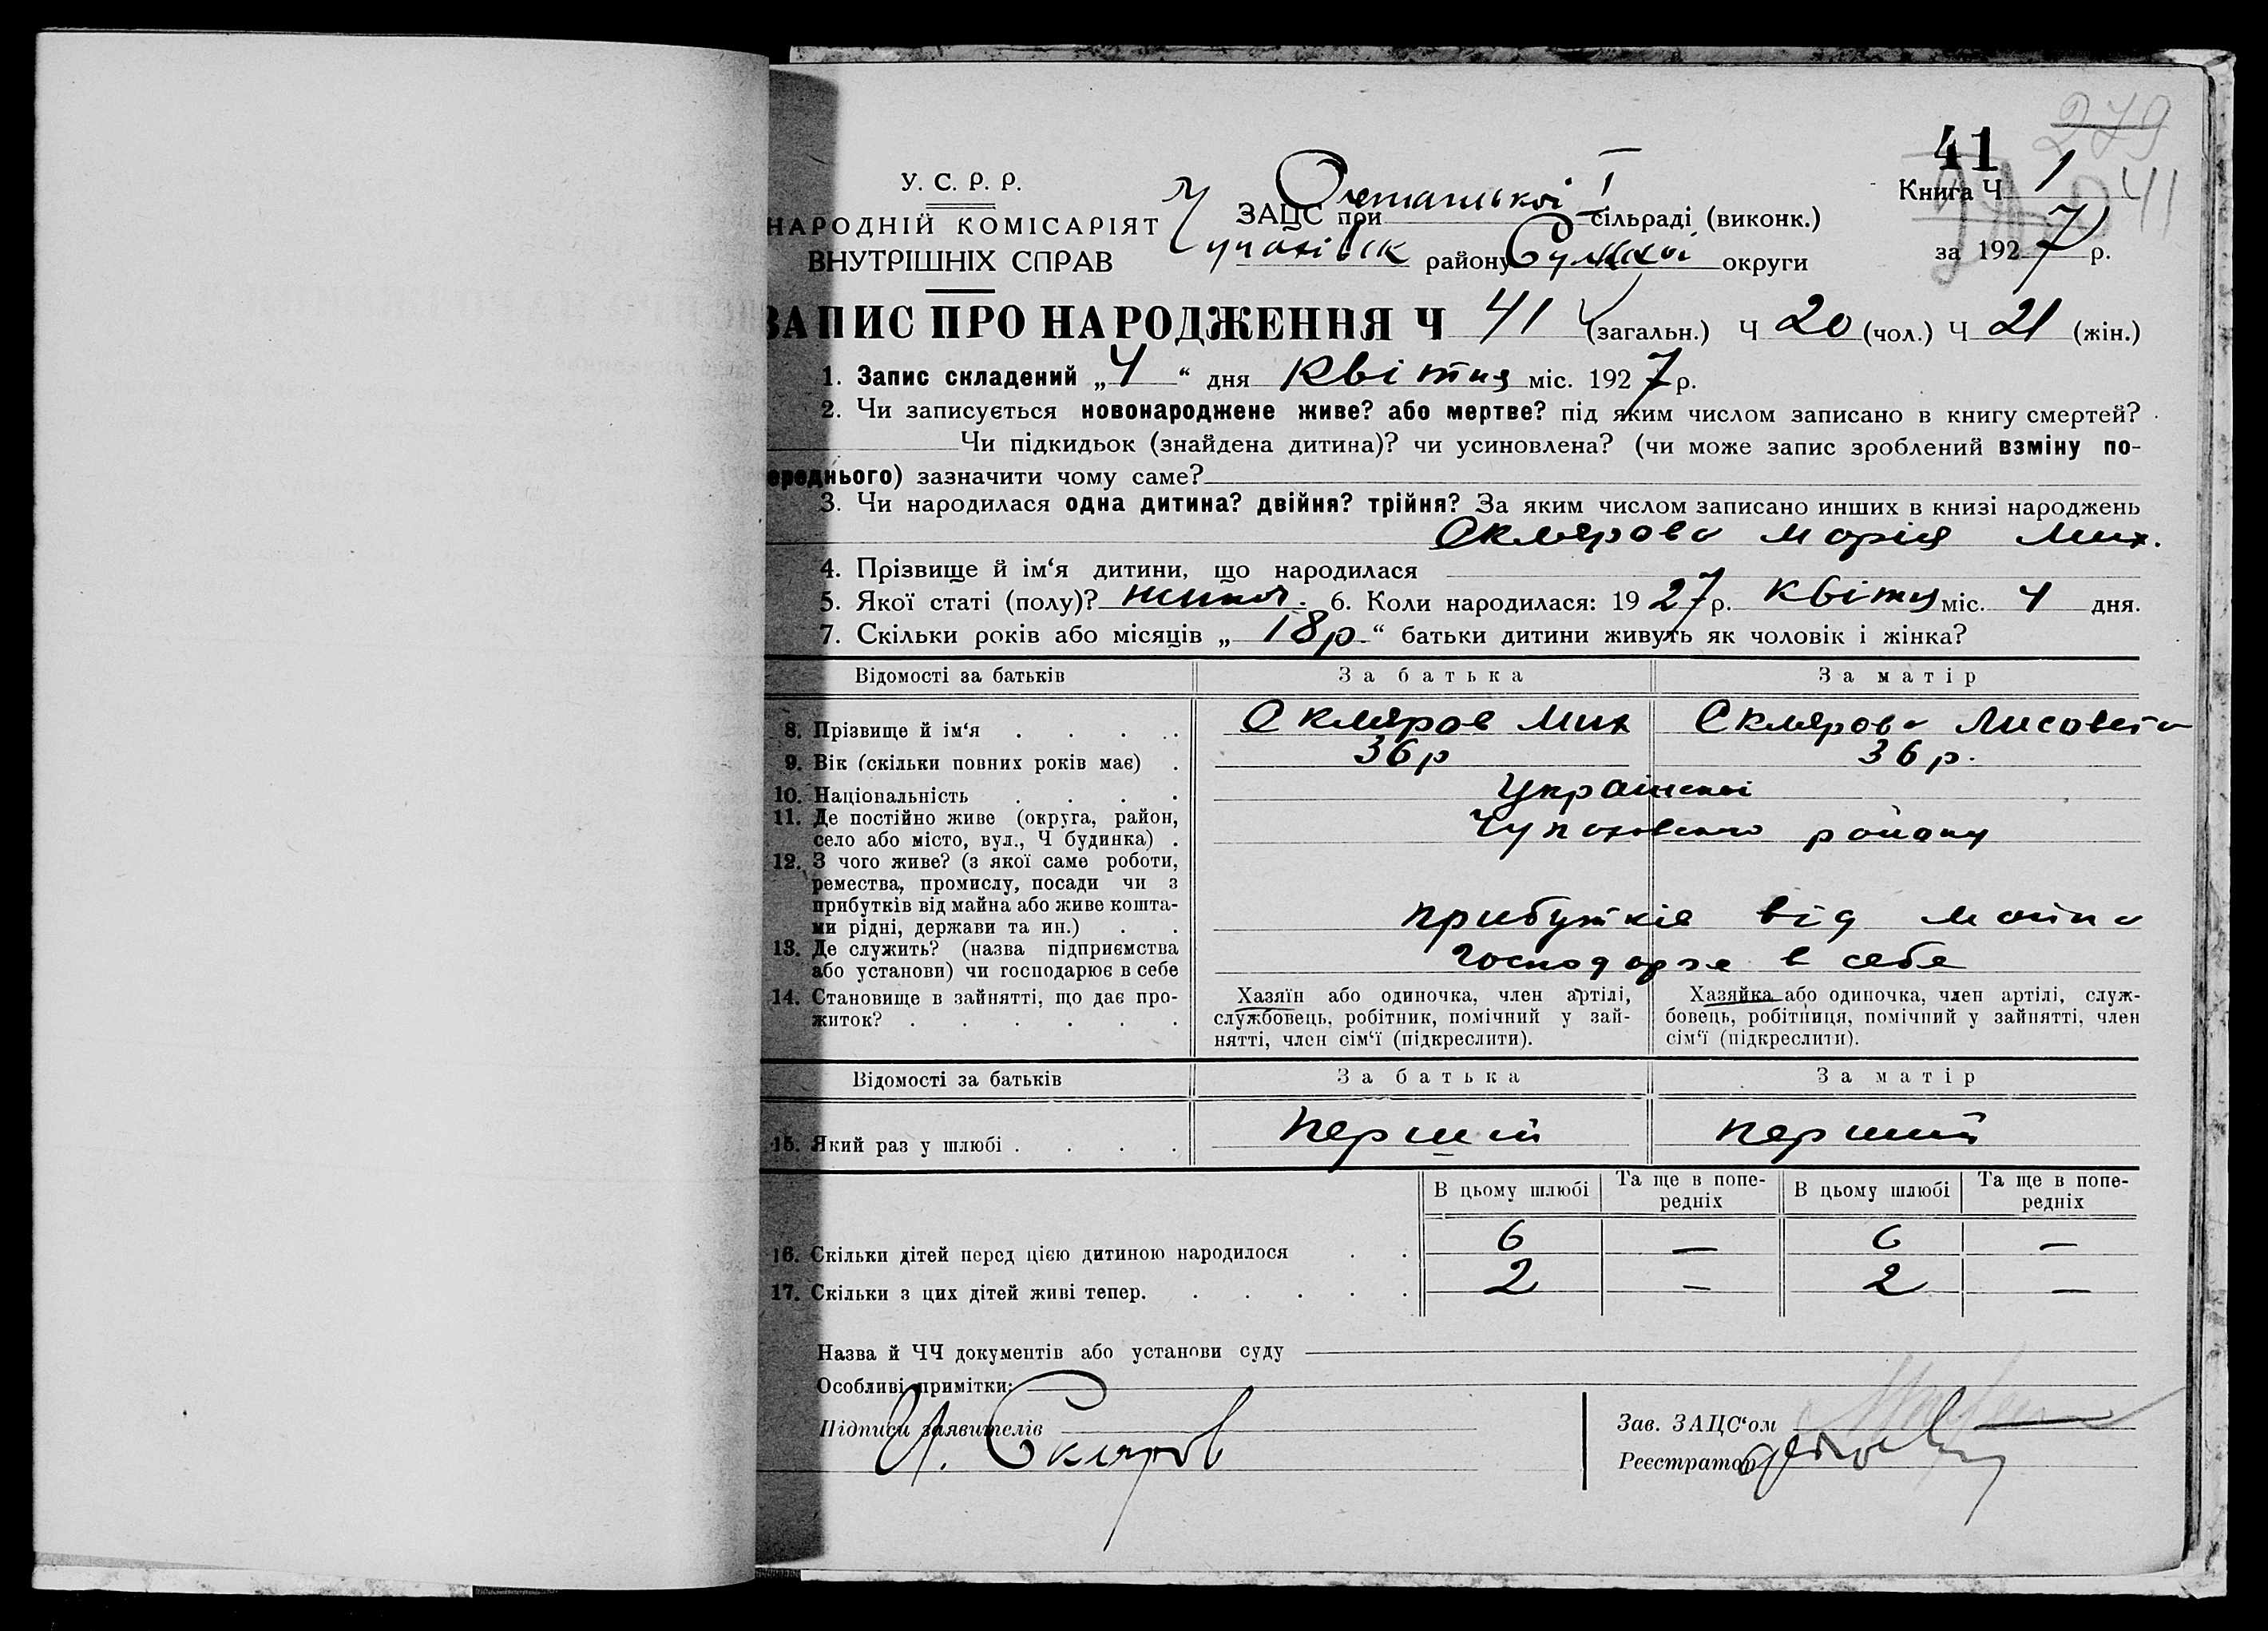 279
41
У. С. Р. Р.
НАРОДНІЙ КОМІСАРІЯТ
ВНУТРІШНІХ СПРАВ
ЗАЦС при I сільраді (виконк.)
Чупахівськ району Сумської округи
Книга Ч 1
41
за 1927 р.
ЗАПИС ПРО НАРОДЖЕННЯ Ч 41 (загальн.) Ч 20 (чол.) Ч 21 (жін.)
1. Запис складений „4“ дня Квітня міс. 1927 р.
2. Чи записується новонароджене живе? або мертве? під яким числом записано в книгу смертей?
Чи підкидьок (знайдена дитина)? чи усиновлена? (чи може запис зроблений взміну по-
ереднього) зазначити чому саме?
3. Чи народилася одна дитина? двійня? трійня? За яким числом записано инших в книзі народжень
Склярова Марія Мих.
4. Прізвище й ім‘я дитини, що народилася
5. Якої статі (полу)? жіноч. 6. Коли народилася: 1927 р. Квітня міс. 4 дня.
7. Скільки років або місяців „18 р.“ батьки дитини живуть як чоловік і жінка?
Відомості за батьків За батька За матір
8. Прізвище й ім‘я . . . . Скляров Мих Склярова Лисовета
9. Вік (скільки повних років має) . 36 р 36 р.
10. Національність . . . . Української
11. Де постійно живе (округа, район,
село або місто, вул., Ч будинка) . Чупаховского району
12. З чого живе? (з якої саме роботи,
ремества, промислу, посади чи з
прибутків від майна або живе кошта-
ми рідні, держави та ин.) . . прибутків від майна
13. Де служить? (назва підприємства
або установи) чи господарює в себе господарює в себе
14. Становище в зайнятті, що дає про-
житок? . . . . . .
Хазяїн або одиночка, член артілі,
службовець, робітник, помічний у зай-
нятті, член сім‘ї (підкреслити).
Хазяйка або одиночка, член артілі, служ-
бовець, робітниця, помічний у зайнятті, член
сім‘ї (підкреслити).
Відомості за батьків За батька За матір
15. Який раз у шлюбі . . . . перший перший
В цьому шлюбі Та ще в попе-
редніх В цьому шлюбі Та ще в попе-
редніх
16. Скільки дітей перед цією дитиною народилося . . 6 — 6 —
17. Скільки з цих дітей живі тепер. . . . . . 2 — 2 —
Назва й ЧЧ документів або установи суду
Особливі примітки:
Підписи заявителів
Скляров
Зав. ЗАЦС‘ом
Реєстратор